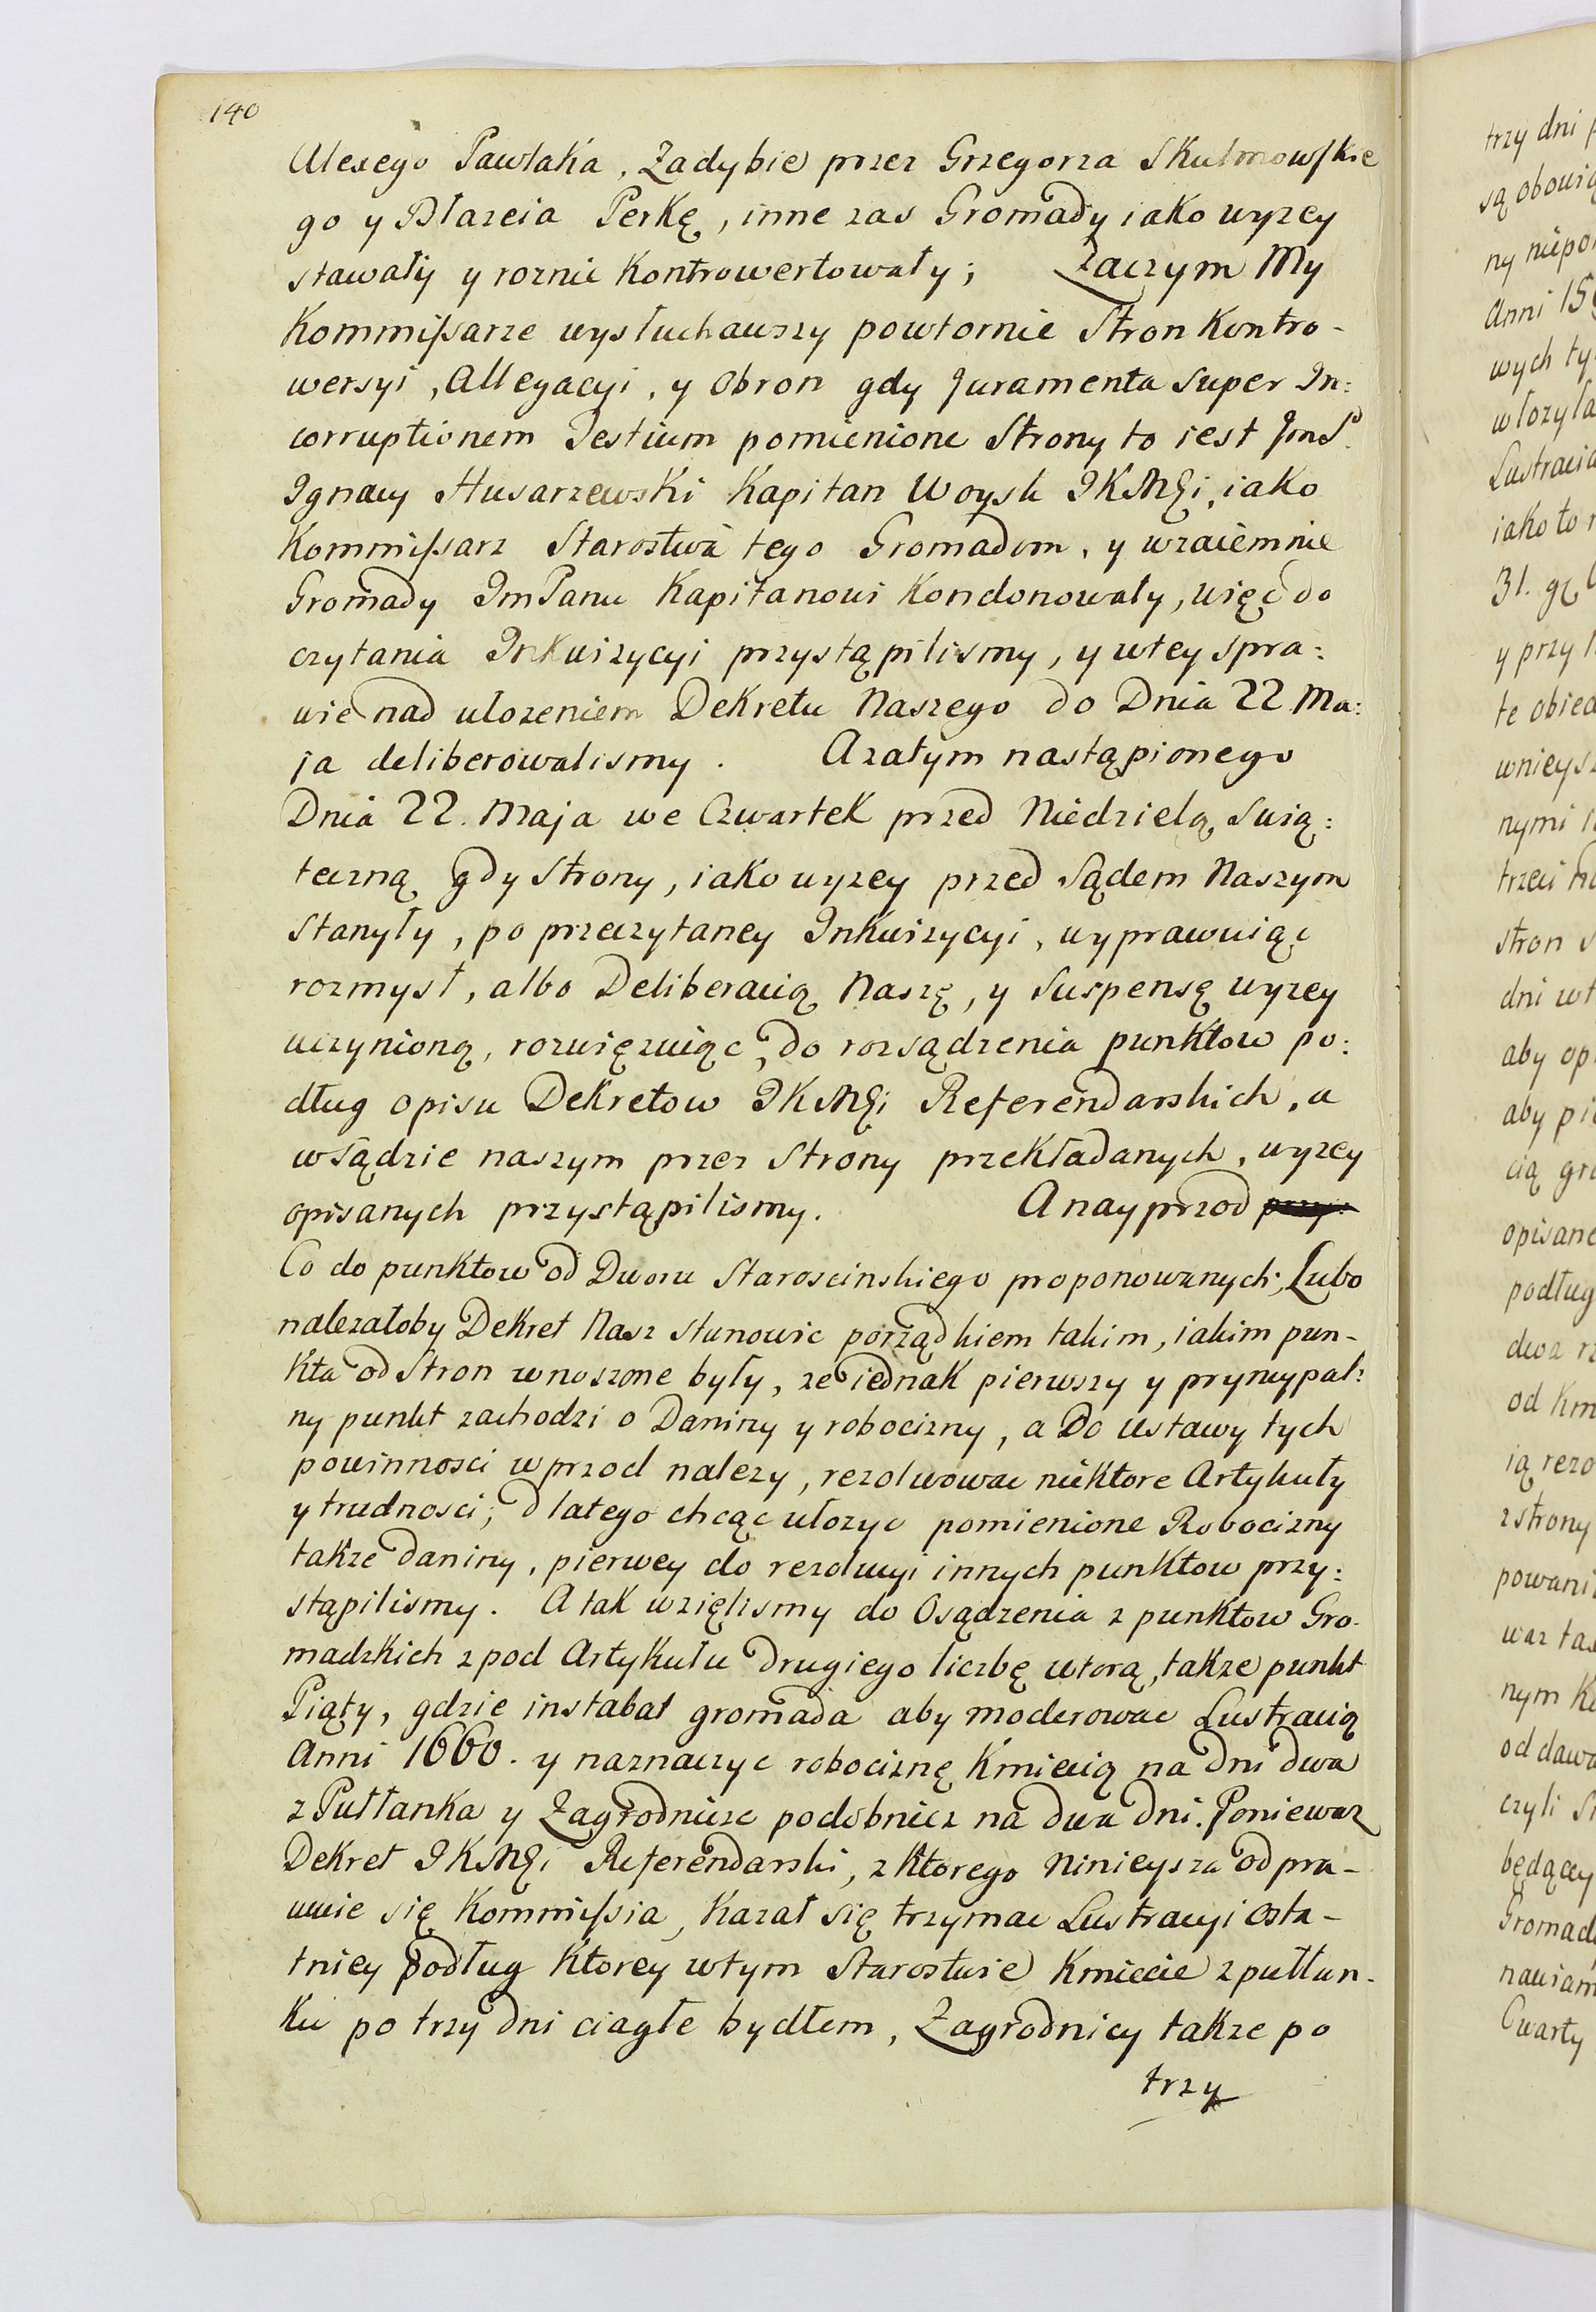 140
Alexego Pawłaka, Zadybie przez Grzegorza Skulmowskie
go y Błazeia Perkę, inne zas Gromady iako wyzey
stawały y roznie kontrowertowały; Zaczym My
Kommissarze wysłuchawszy powtornie Stron Kontro-
wersyi, Allegacyi, y Obron gdy Juramenta super In:
corruptionem Testium pomienione Strony to iest Jmć P.
Ignacy Husarzewski Kapitan Woysk JKMći, iako
Kommissarz Starostwa tego Gromadom, y wzaiemnie
Gromady Jm Panu Kapitanowi Kondonowały, więc do
czytania Inkwizycyi przystąpilismy, y wtey spra:
wie nad ulozeniem Dekretu Naszego do Dnia 22 Ma:
ja deliberowalismy. Azatym nastąpionego
Dnia 22. Maja we Czwartek przed Niedzielą Swią:
teczną gdy Strony, iako wyzey przed Sądem Naszym
Stanyły, po przeczytaney Inkwizycyi, wyprawuiąc
rozmysł, albo Deliberacią Naszę, y Suspensę wyzey
uczynioną, rozwięzuiąc, do rozsądzenia punktow po:
dług opisu Dekretow JKMći Referendarskich, a
wSądzie naszym przez Strony przekładanych, wyzey
opisanych przystąpilismy. A nayprzod przy:
Co do punktow od Dworu Staroscinskiego proponowanych; Lubo
nalezałoby Dekret Nasz stanowic porządkiem takim, iakim pun-
kta od Stron wnoszone były, ze iednak pierwszy y pryncypal:
ny punkt zachodzi o Daniny y robocizny, a Do Ustawy tych
powinnosci wprzod nalezy, rezolwowac niektore Artykuły
y trudnosci; dlatego chcąc ułozyc pomienione Robocizny
takze daniny, pierwey do rezolucyi innych punktow przy:
stąpilismy. A tak wzięlismy do Osądzenia z punktow Gro-
madzkich z pod Artykułu drugiego liczbę wtorą, takze punkt
Piąty, gdzie instabat gromada aby moderowac Lustracią
Anni 1660. y naznaczyc robociznę Kmiecią na dni dwa
z Pułłanka y Zagrodnicze podobniez na dwa dni. Poniewaz
Dekret JKMći Referendarski, z ktorego Ninieysza odpra-
wuie się Kommissia, Kazał się trzymac Lustracyi osta-
tniey podług ktorey wtym Starostwie Kmiecie z pułłan-
ku po trzy dni ciagłe bydłem, Zagrodnicy takze po
trzy
trzy dni
są obowią
ny niepo
Anni 15
wych ty
włozyła
Lustracia
iako to
31. gr
y przy
te obie
wnieys
nymi
trzeci
stron
dni
aby op
aby pi
cią gr
opisane
podług
dwa
od Km
ią rezo
z strony
powani
waz ta
nym
od dawa
czyli
będący
Gromad
nawiam
Cwarty